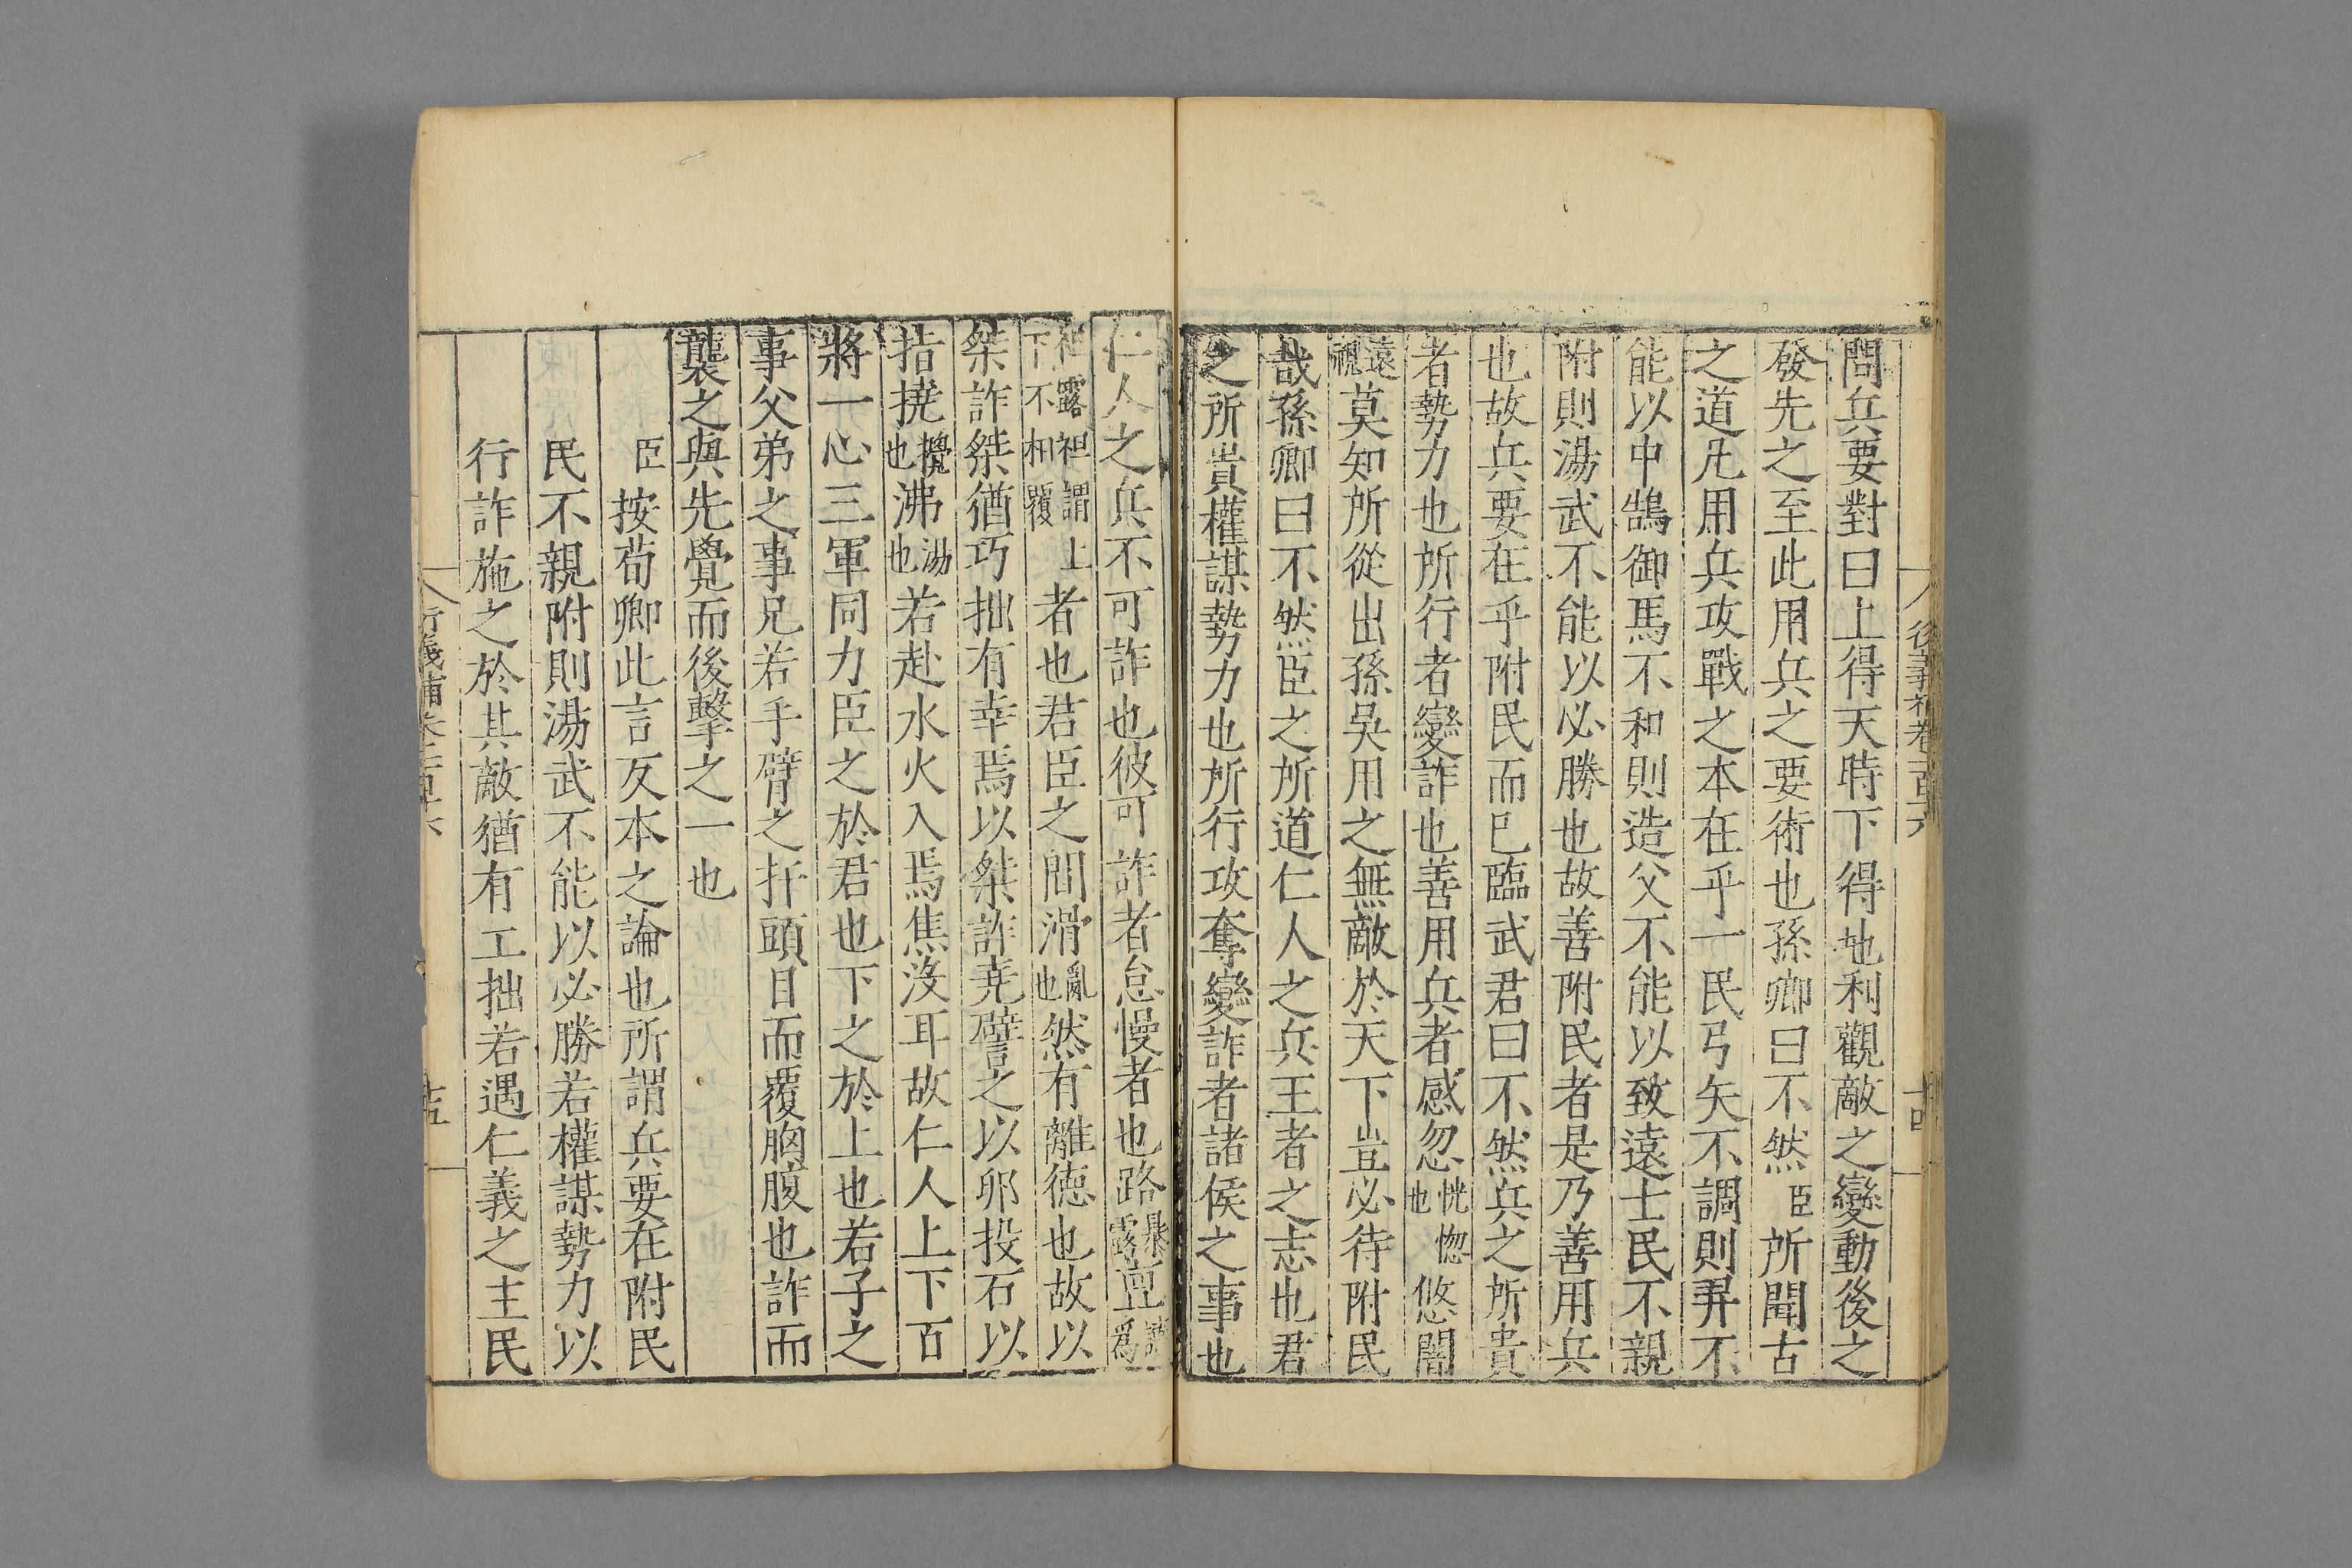 問兵要對曰上得天時下得地利觀敵之變動後之
發先之至此用兵之要術也孫卿曰不然臣所聞古
之道凡用兵攻戰之本在乎一民弓矢不調則羿不
能以中鵠御馬不和則造父不能以致遠士民不親
附則湯武不能以必勝也故善附民者是乃善用兵
也故兵要在乎附民而已臨武君曰不然兵之所貴
者勢力也所行者變詐也善用兵者感忽恍惚也悠闇
遠視莫知所從出孫吳用之無敵於天下豈必待附民
哉孫卿曰不然臣之所道仁人之兵王者之志也君
之所貴權謀勢力也所行攻奪變詐者諸侯之事也
仁人之兵不可詐也彼可詐者怠慢者也路暴露亶讀爲
袒露袒謂上下不相覆者也君臣之間滑亂也然有離德也故以
桀詐桀猶巧拙有幸焉以桀詐堯譬之以卵投石以
指撓攪也沸湯也若赴水火入焉焦沒耳故仁人上下百
將一心三軍同力臣之於君也下之於上也若子之
事父弟之事兄若手臂之扞頭目而覆胸腹也詐而
襲之與先覺而後擊之一也
臣按荀卿此言反本之論也所謂兵要在附民
民不親附則湯武不能以必勝若權謀勢力以
行詐施之於其敵猶有工拙若遇仁義之主民
衍義補卷一百十六
十五